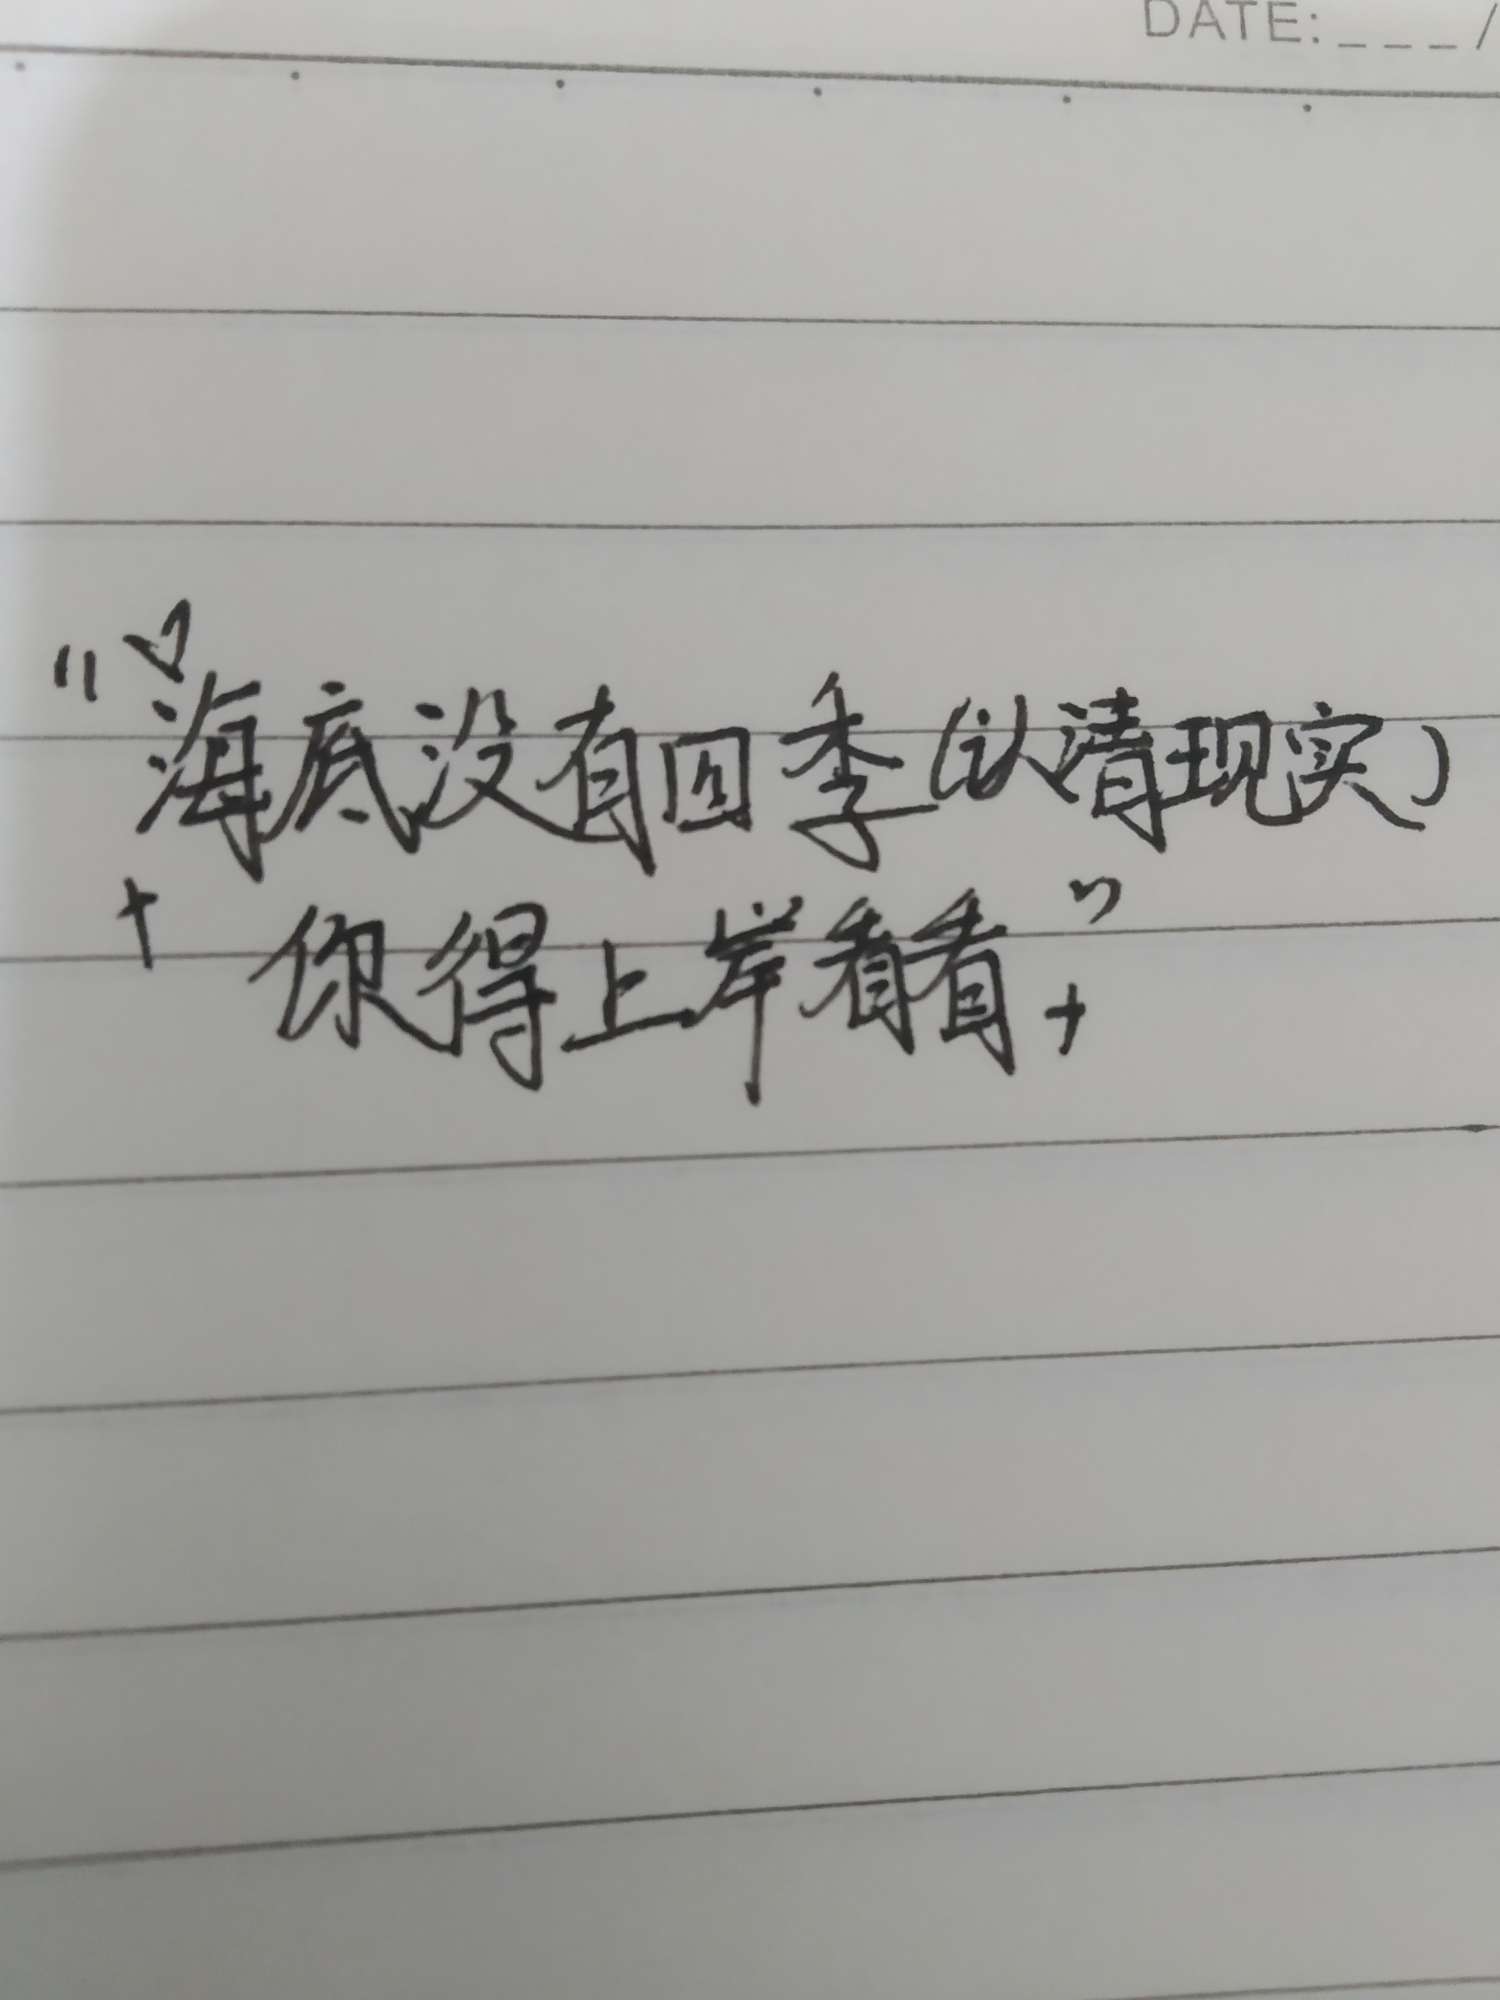 DATE:___/
"海底没有四季(认清现实)
你得上岸看看"